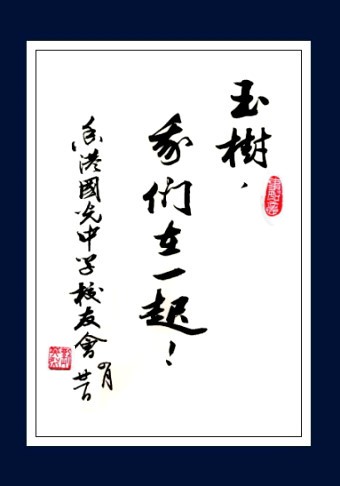 玉樹，
我們在一起！
香港國光中学校友會
四月
廿日